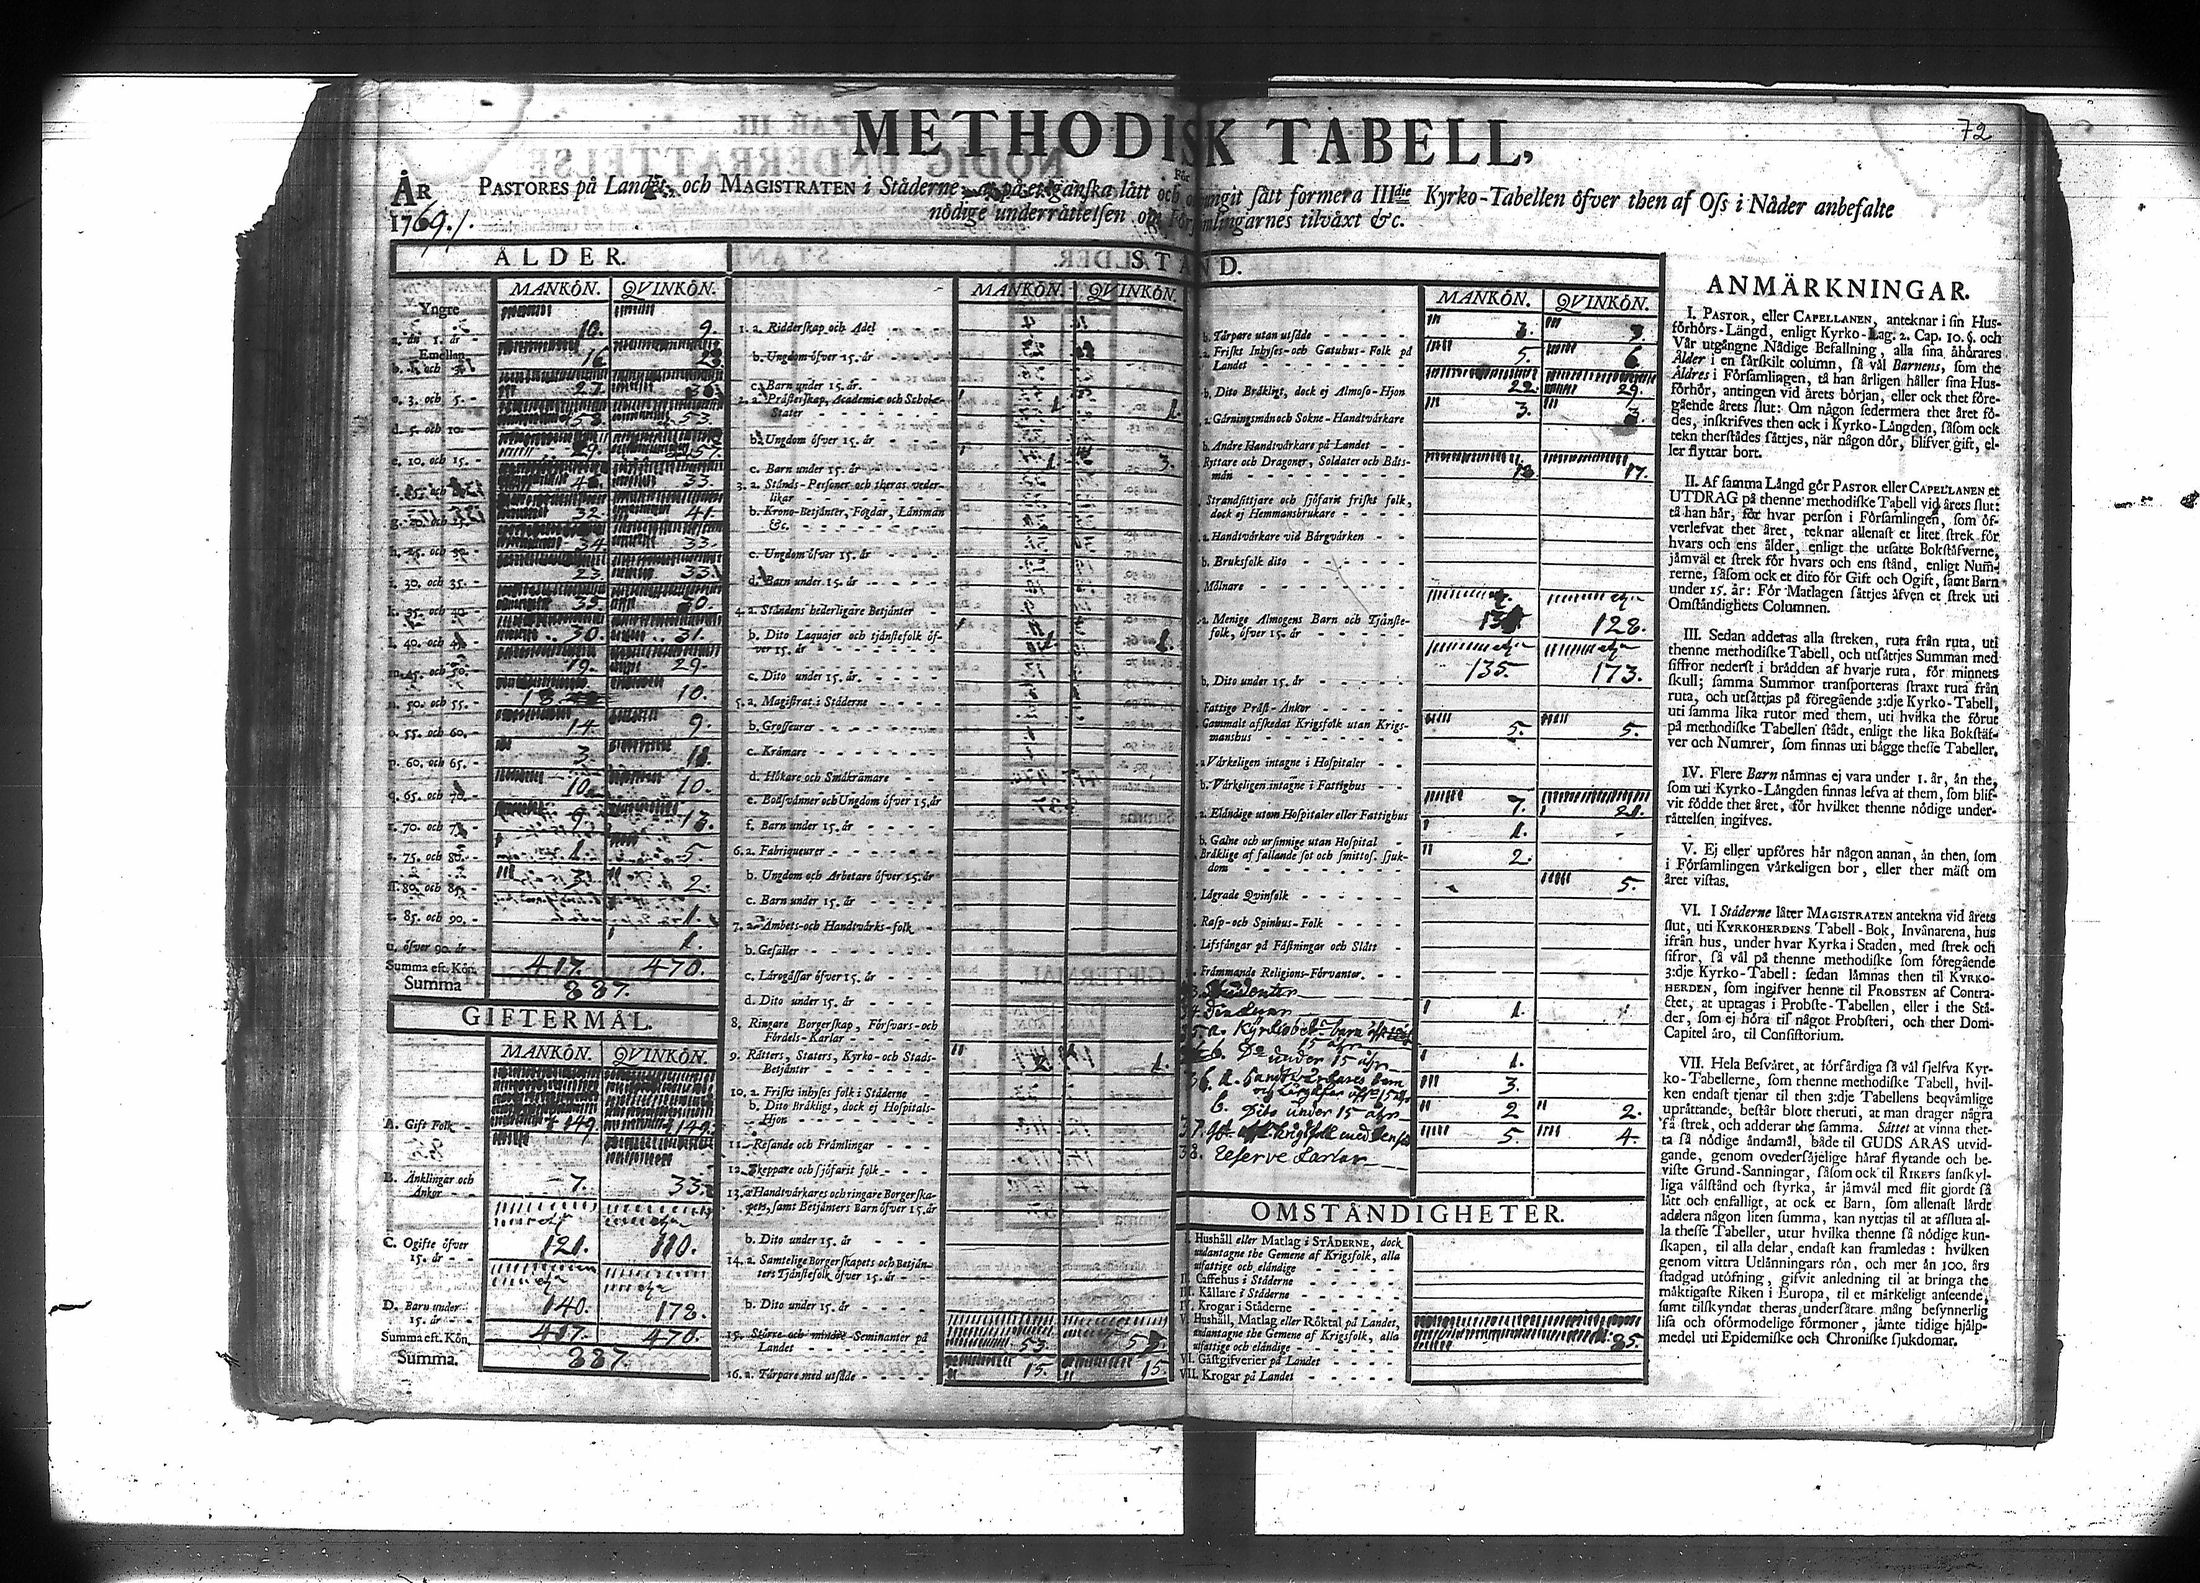 72
METHODISK TABELL,
För
ÅR
1769.
PASTORES på Landet, och MAGISTRATEN i Städerne at på et ganska lätt och otvungit sätt formera IIIdie Kyrko-Tabellen öfver then af Oss i Nåder anbefalte
nödige underrättelsen om Församlingarnes tilväxt &c.
ÅLDER.
MANKÖN. QVINKÖN.
Yngre
a. än 1. år 10. 9.
Emellan
b. 1. och 3. 16 23
c. 3. och 5. 27. 30.
d. 5. och 10. 58. 53.
e. 10. och 15. 29. 57.
f. 15. och 33.
g. 32. 41.
h. 25. och 30. 34. 33.
i. 30. och 35. 23. 33.
k. 35. och 40. 35. 40.
l. 40. och 45. 30. 31.
m. 45. och 50. 19. 29.
n. 50. och 55. 18 10.
o. 55. och 60. 14. 9.
p. 60. och 65. 3. 11.
q. 65. och 70. 10. 10.
r. 70. och 75. 9. 13.
s. 75. och 80. 1. 5.
ss. 80. och 85. 3. 2.
t. 85. och 90. 1.
u. öfver 90. år 1.
Summa eft. Kön. 417. 470.
Summa 887.
GIFTERMÅL.
MANKÖN. QVINKÖN.
A. Gift Folk 149. 149.
B. Änklingar och
Änkor 7. 33.
C. Ogifte öfver
15. år 121. 110.
D. Barn under
15. år 140. 178.
Summa eft. Kön. 417. 470.
Summa. 887.
STÅND.
MANKÖN. QVINKÖN.
1. a. Ridderskap och Adel
b. Ungdom öfver 15. år
c. Barn under 15. år.
2. a. Prästerskap, Academiæ och Schole-
Stater 1. 1.
b. Ungdom öfver 15. år
c. Barn under 15. år 1. 3.
3. a. Stånds-Personer och theras veder-
likar
b. Krono-Betjänter, Fogdar, Länsmän
&c.
c. Ungdom öfver 15. år
d. Barn under 15. år
4. a. Ståndens hederligare Betjänter
b. Dito Laquajer och tjänstefolk öf-
ver 15. år 1. 1.
c. Dito under 15. år.
5. a. Magistrat i Städerne
b. Grosseurer
c. Krämare
d. Hökare och Småkrämare
e. Bodsvänner och Ungdom öfver 15. år
f. Barn under 15. år
6. a. Fabriqueurer
b. Ungdom och Arbetare öfver 15. år
c. Barn under 15. år
7. a. Ämbets- och Handtvärks-folk
b. Gesäller
c. Lärogåssar öfver 15. år
d. Dito under 15. år
8. Ringare Borgerskap, Försvars- och
Fördels-Karlar
9. Rätters, Staters, Kyrko- och Stads-
Betjänter 2. 1.
10. a. Friskt inhyses folk i Städerne
b. Dito Bräkligt, dock ej Hospitals-
Hjon
11. Resande och Främlingar
12. Skeppare och sjöfarit folk
13. a. Handtvärkares och ringare Borgerska-
pets, samt Betjänters Barn öfver 15. år
b. Dito under 15. år
14. a. Samtelige Borgerskapets och Betjän-
ters Tjänstefolk öfver 15. år
b. Dito under 15. år
15. Större och mindre Seminanter på
Landet 53. 53.
16. a. Torpare med utsäde 15. 15.
MANKÖN. QVINKÖN.
b. Torpare utan utsäde 3. 3
a. Friskt Inhyses- och Gatuhus-Folk på
Landet 5. 6
b. Dito Bräkligt, dock ej Almoso-Hjon 22. 29.
a. Gärningsmän och Sokne-Handtvärkare 3. 3.
b. Andre Handtvärkare på Landet
Ryttare och Dragoner, Soldater och Båts-
män 17.
Strandsittjare och sjöfarit friskt folk,
dock ej Hemmansbrukare
a. Handtvärkare vid Bärgvärken
b. Bruksfolk dito
Mölnare
a. Menige Almogens Barn och Tjänste-
folk, öfver 15. år 128.
b. Dito under 15. år 135. 173.
Fattige Präst-Änkor
Gammalt afskedat Krigsfolk utan Krigs-
manshus 5. 5.
a. Värkeligen intagne i Hospitaler
b. Värkeligen intagne i Fattighus
a. Eländige utom Hospitaler eller Fattighus 7. 21.
b. Galne och ursinnige utan Hospital 1.
Bräklige af fallande sot och smittos. sjuk-
dom 2.
Lägrade Qvinfolk 5.
Rasp- och Spinhus-Folk
Lifsfångar på Fästningar och Slått
Främmande Religions-Förvanter.
33 Studenter
34. 1.
35. a. Kyrkiobet. barn öfr
15 åhr
b. Do under 15 åhr 1.
36. a. Handtvärkares barn
och Lärgåssar öfr 15 åhr 3.
b. Dito under 15 åhr 2 2.
37. krigsfolk med 5. 4.
38. Reserve Karlar
OMSTÄNDIGHETER.
I. Hushåll eller Matlag i STÄDERNE, dock
undantagne the Gemene af Krigsfolk, alla
utfattige och eländige
II. Caffehus i Städerne
III. Källare i Städerne
IV. Krogar i Städerne
V. Hushåll, Matlag eller Röktal på Landet,
undantagne the Gemene af Krigsfolk, alla
utfattige och eländige 85.
VI. Gästgifverier på Landet
VII. Krogar på Landet
ANMÄRKNINGAR.
I. PASTOR, eller CAPELLANEN, anteknar i sin Hus-
förhörs-Längd, enligt Kyrko-Lag. 2. Cap. 10. §. och
Vår utgångne Nådige Befallning, alla sina åhörares
Ålder i en särskilt column, så väl Barnens, som the
Äldres i Församlingen, tå han årligen håller sina Hus-
förhör, antingen vid årets början, eller ock thet före-
gående årets slut: Om någon sedermera thet året fö-
des, inskrifves then ock i Kyrko-Längden, såsom ock
tekn therstädes sättjes, när någon dör, blifver gift, el-
ler flyttar bort.
II. Af samma Längd gör PASTOR eller CAPELLANEN et
UTDRAG på thenne methodiske Tabell vid årets slut:
tå han här, för hvar person i Församlingen, som öf-
verlefvat thet året, teknar allenast et litet strek för
hvars och ens ålder, enligt the utsatte Bokstäfverne,
jämväl et strek för hvars och ens stånd, enligt Num-
rerne, såsom ock et dito för Gift och Ogift, samt Barn
under 15. år: För Matlagen sättjes äfven et strek uti
Omständighets Columnen.
III. Sedan adderas alla streken, ruta från ruta, uti
thenne methodiske Tabell, och utsättjes Summan med
siffror nederst i brädden af hvarje ruta, för minnets
skull; samma Summor transporteras straxt ruta från
ruta, och utsättjas på föregående 3:dje Kyrko-Tabell,
uti samma lika rutor med them, uti hvilka the förut
på methodiske Tabellen städt, enligt the lika Bokstäf-
ver och Numrer, som finnas uti bägge thesse Tabeller.
IV. Flere Barn nämnas ej vara under 1. år, än the,
som uti Kyrko-Längden finnas lefva af them, som blif-
vit födde thet året, för hvilket thenne nödige under-
rättelsen ingifves.
V. Ej eller upföres här någon annan, än then, som
i Församlingen värkeligen bor, eller ther mäst om
året vistas.
VI. I Städerne låter MAGISTRATEN antekna vid årets
slut, uti KYRKOHERDENS Tabell-Bok, Invånarena, hus
ifrån hus, under hvar Kyrka i Staden, med strek och
sifror, så väl på thenne methodiske som föregående
3:dje Kyrko-Tabell: sedan lämnas then til KYRKO-
HERDEN, som ingifver henne til PROBSTEN af Contra-
ctet, at uptagas i Probste-Tabellen, eller i the Stä-
der, som ej höra til något Probsteri, och ther Dom-
Capitel äro, til Consistorium.
VII. Hela Besväret, at förfärdiga så väl sjelfva Kyr-
ko-Tabellerne, som thenne methodiske Tabell, hvil-
ken endast tjenar til then 3:dje Tabellens beqvämlige
uprättande, består blott theruti, at man drager några
få strek, och adderar the samma. Sättet at vinna thet-
ta så nödige ändamål, både til GUDS ÄRAS utvid-
gande, genom ovedersäjelige häraf flytande och be-
viste Grund-Sanningar, såsom ock til RIKETS sanskyl-
liga välstånd och styrka, är jämväl med flit gjordt så
lätt och enfalligt, at ock et Barn, som allenast lärdt
addera någon liten summa, kan nyttjas til at afsluta al-
la thesse Tabeller, utur hvilka thenne så nödige kun-
skapen, til alla delar, endast kan framledas: hvilken
genom vittra Utlänningars rön, och mer än 100. års
stadgad utöfning, gifvit anledning til at bringa the
mäktigaste Riken i Europa, til et märkeligt anseende,
samt tilskyndat theras undersåtare mång besynnerlig
lisa och oförmodelige förmoner, jämte tidige hjälp-
medel uti Epidemiske och Chroniske sjukdomar.